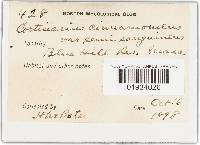 428
BOSTON MYCOLOGICAL CLUB
Cortinarius cinnamomeus
var. semi-sanguineus
Locality, Blue Hill Res., Mass.
Habitat and other notes
01934020
Collected by
Date Oct. 6
1898